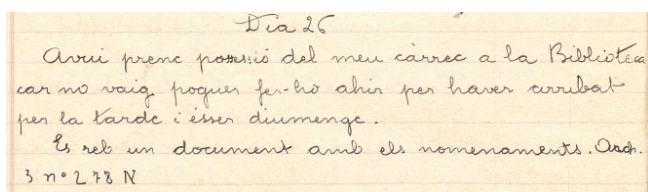 Dia 26
Avui prenc possesió del meu càrrec a la Biblioteca
car no vaig poguer fer-ho ahir per haver arribat
per la tarde i ésser diumenge.
Es reb un document amb els nomenaments. Arch.
3 nº 278 N